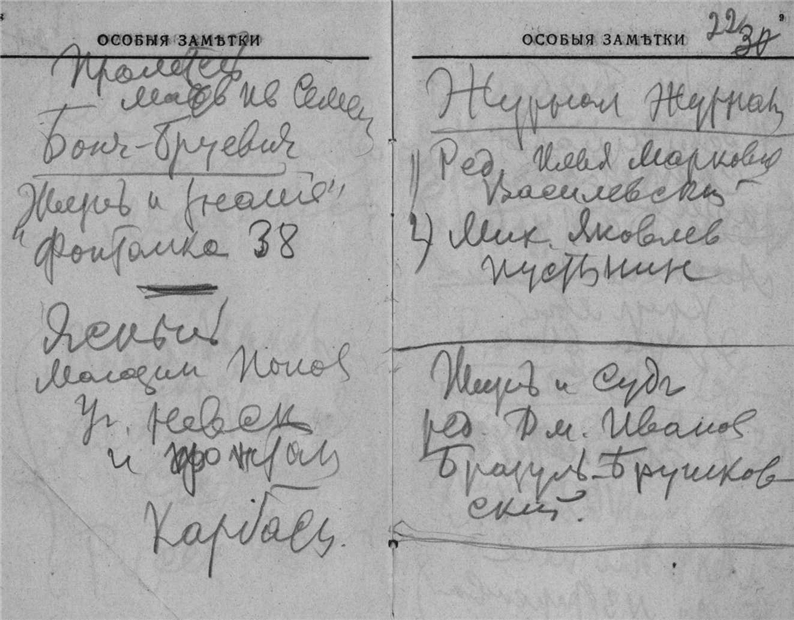 ОСОБЫЯ ЗАМѢТКИ
Матв Ив Семен
Бонч-Бруевич
Жизнь и знания"
"Фонтанка 38
Ясный
Магазин Попов
Уг. Невск
и
Карбасн.
ОСОБЫЯ ЗАМѢТКИ
22
30
Журнал Журнал
1) Ред. Илья Маркович
Василевский
2) Мих. Яковлев
Пустынин
Жизнь и Судъ
ред. Дм. Иванов
Бразуль-Брушков-
ский.